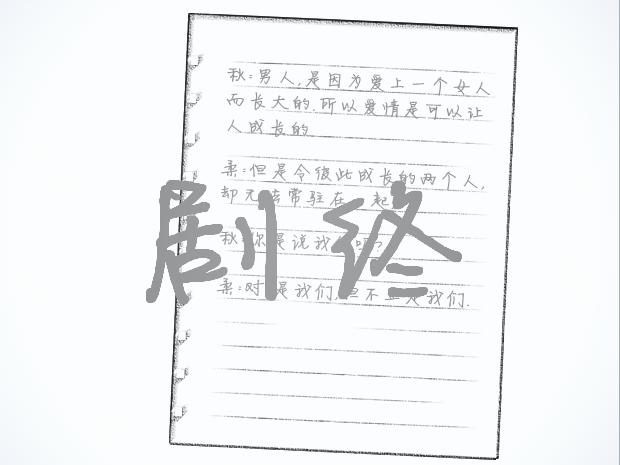 秋:男人,是因为爱上一个女人
而长大的.所以爱情是可以让
人成长的
柔:但是令彼此成长的两个人,
却无法常驻在一起
秋:你是说我 吗?
柔:对 是我们,但不 是我们.
剧终